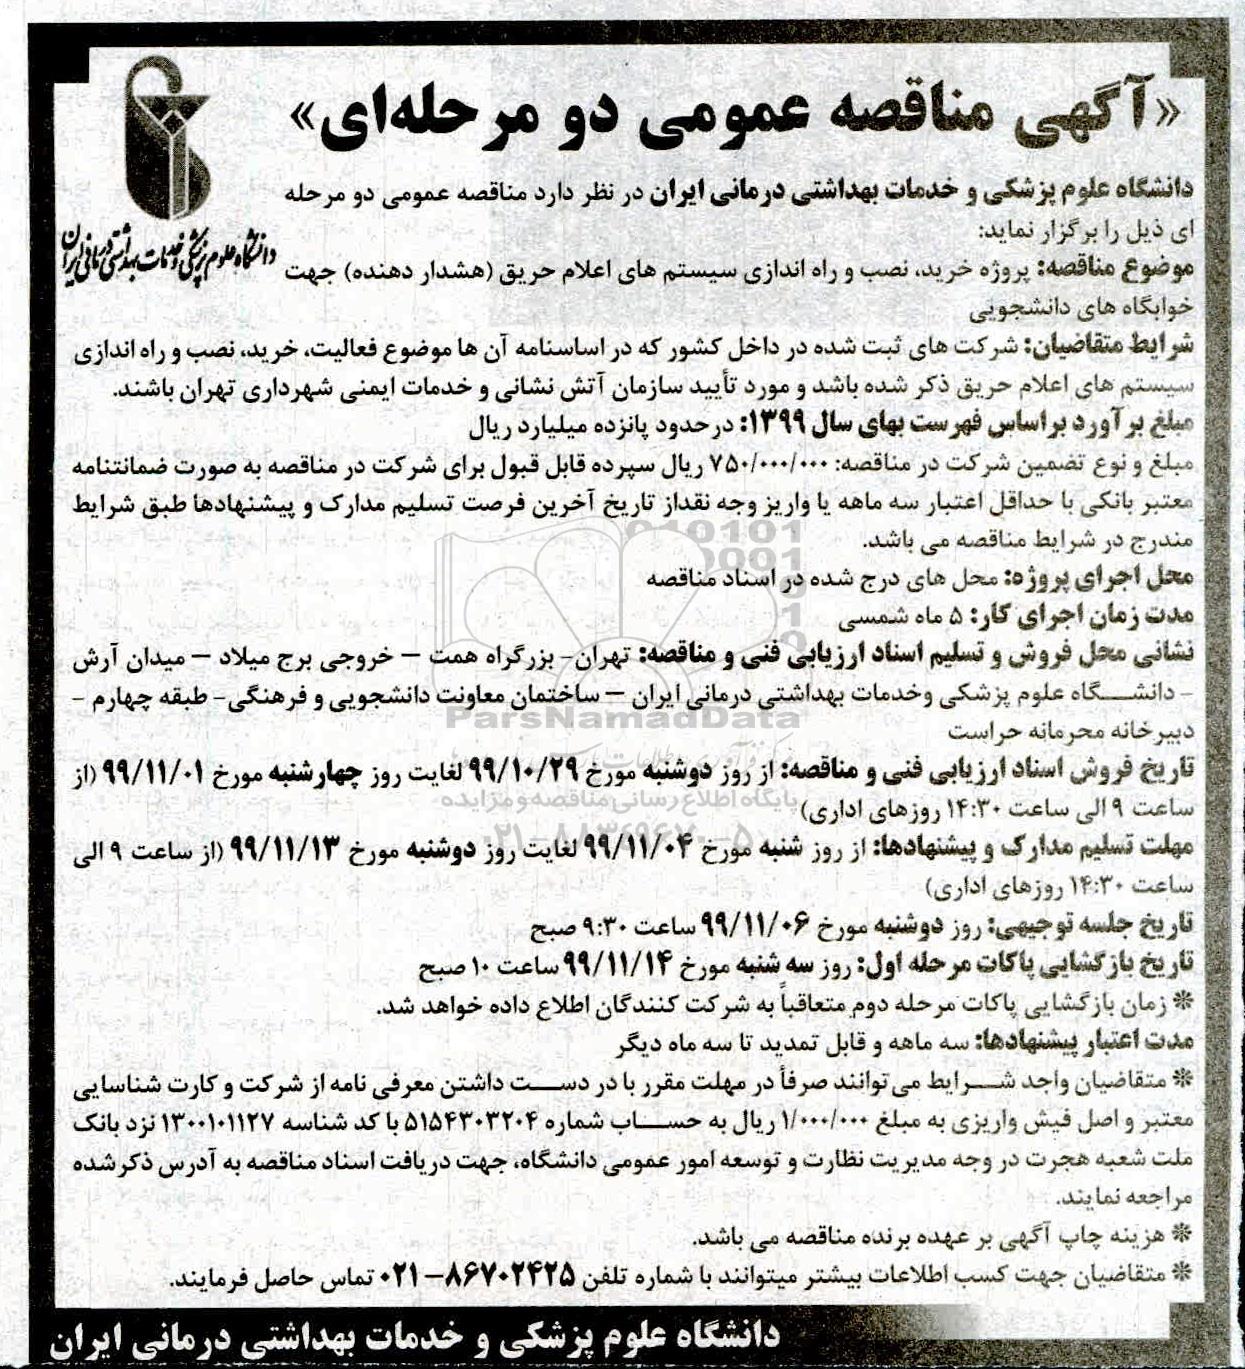 «آگهی مناقصه عمومی دو مرحله‌ای»
دانشگاه علوم پزشکی و خدمات بهداشتی درمانی ایران
دانشگاه علوم پزشکی و خدمات بهداشتی درمانی ایران در نظر دارد مناقصه عمومی دو مرحله
ای ذیل را برگزار نماید:
موضوع مناقصه: پروژه خرید، نصب و راه اندازی سیستم های اعلام حریق (هشدار دهنده) جهت
خوابگاه های دانشجویی
شرایط متقاضیان: شرکت های ثبت شده در داخل کشور که در اساسنامه آن ها موضوع فعالیت، خرید، نصب و راه اندازی
سیستم های اعلام حریق ذکر شده باشد و مورد تأیید سازمان آتش نشانی و خدمات ایمنی شهرداری تهران باشند.
مبلغ برآورد براساس فهرست بهای سال ۱۳۹۹: درحدود پانزده میلیارد ریال
مبلغ و نوع تضمین شرکت در مناقصه: ۷۵۰/۰۰۰/۰۰۰ ریال سپرده قابل قبول برای شرکت در مناقصه به صورت ضمانتنامه
معتبر بانکی با حداقل اعتبار سه ماهه یا واریز وجه نقداز تاریخ آخرین فرصت تسلیم مدارک و پیشنهادها طبق شرایط
مندرج در شرایط مناقصه می باشد.
محل اجرای پروژه: محل های درج شده در اسناد مناقصه
مدت زمان اجرای کار: ۵ ماه شمسی
نشانی محل فروش و تسلیم اسناد ارزیابی فنی و مناقصه: تهران- بزرگراه همت – خروجی برج میلاد – میدان آرش
- دانشگاه علوم پزشکی وخدمات بهداشتی درمانی ایران – ساختمان معاونت دانشجویی و فرهنگی- طبقه چهارم -
دبیرخانه محرمانه حراست
تاریخ فروش اسناد ارزیابی فنی و مناقصه: از روز دوشنبه مورخ ۹۹/۱۰/۲۹ لغایت روز چهارشنبه مورخ ۹۹/۱۱/۰۱ (از
ساعت ۹ الی ساعت ۱۴:۳۰ روزهای اداری)
مهلت تسلیم مدارک و پیشنهادها: از روز شنبه مورخ ۹۹/۱۱/۰۴ لغایت روز دوشنبه مورخ ۹۹/۱۱/۱۳ (از ساعت ۹ الی
ساعت ۱۴:۳۰ روزهای اداری)
تاریخ جلسه توجیهی: روز دوشنبه مورخ ۹۹/۱۱/۰۶ ساعت ۹:۳۰ صبح
تاریخ بازگشایی پاکات مرحله اول: روز سه شنبه مورخ ۹۹/۱۱/۱۴ ساعت ۱۰ صبح
* زمان بازگشایی پاکات مرحله دوم متعاقباً به شرکت کنندگان اطلاع داده خواهد شد.
مدت اعتبار پیشنهادها: سه ماهه و قابل تمدید تا سه ماه دیگر
* متقاضیان واجد شرایط می‌توانند صرفاً در مهلت مقرر با در دست داشتن معرفی نامه از شرکت و کارت شناسایی
معتبر و اصل فیش واریزی به مبلغ ۱/۰۰۰/۰۰۰ ریال به حساب شماره ۵۱۵۴۳۰۳۲۰۴ با کد شناسه ۱۳۰۰۱۰۱۱۲۷ نزد بانک
ملت شعبه هجرت در وجه مدیریت نظارت و توسعه امور عمومی دانشگاه، جهت دریافت اسناد مناقصه به آدرس ذکر شده
مراجعه نمایند.
* هزینه چاپ آگهی بر عهده برنده مناقصه می باشد.
* متقاضیان جهت کسب اطلاعات بیشتر میتوانند با شماره تلفن ۸۶۷۰۲۴۲۵-۰۲۱ تماس حاصل فرمایند.
دانشگاه علوم پزشکی و خدمات بهداشتی درمانی ایران
ParsNamadData
پایگاه اطلاع رسانی مناقصه و مزایده
۰۲۱-۸۸۳۴۹۶۷۰-۵